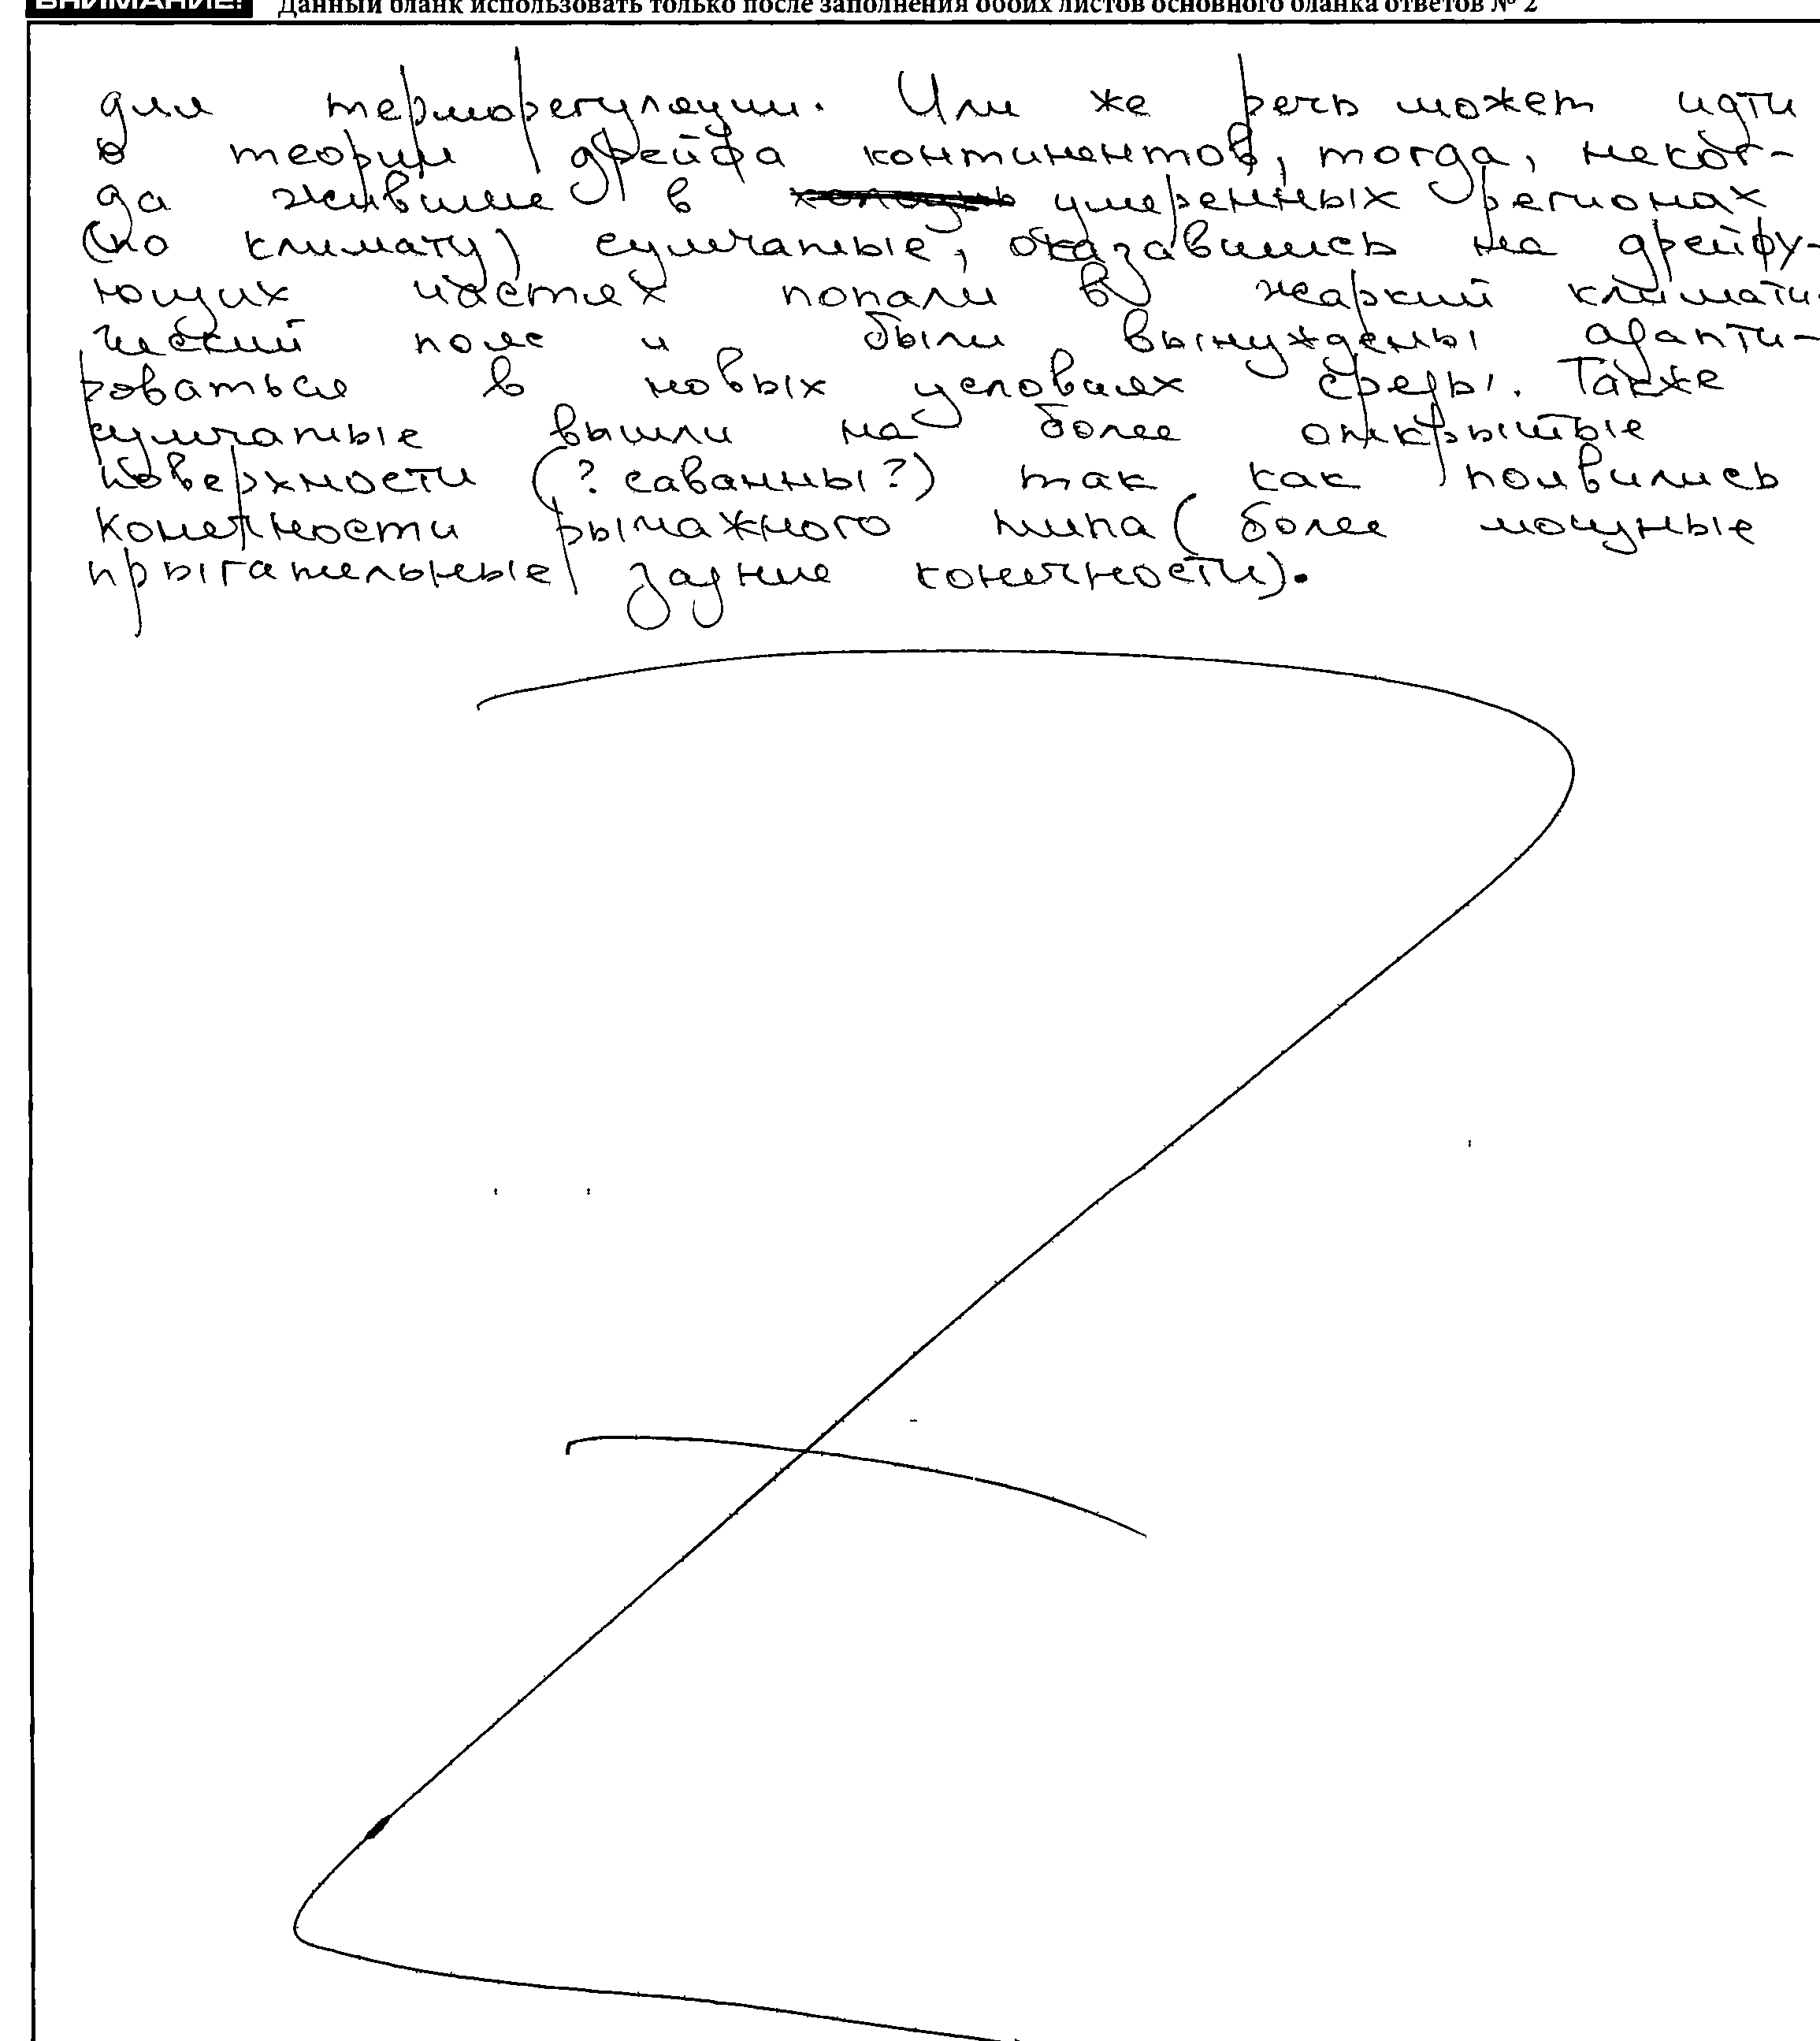 ВНИМАНИЕ! Данный бланк использовать только после заполнения обоих листов основного бланка ответов № 2
для терморегуляции. Или же речь может идти
о теории дрейфа континентов, тогда, неког-
да жившие в умеренных регионах
(по климату) сумчатые, оказавшись на дрейфу-
ющих частях попали в жаркий климати-
ческий пояс и были вынуждены адапти-
роваться в новых условиях среды. Также
сумчатые вышли на более открытые
поверхности (? саванны?) так как появились
конечности рычажного типа (более мощные
прыгательные задние конечности).